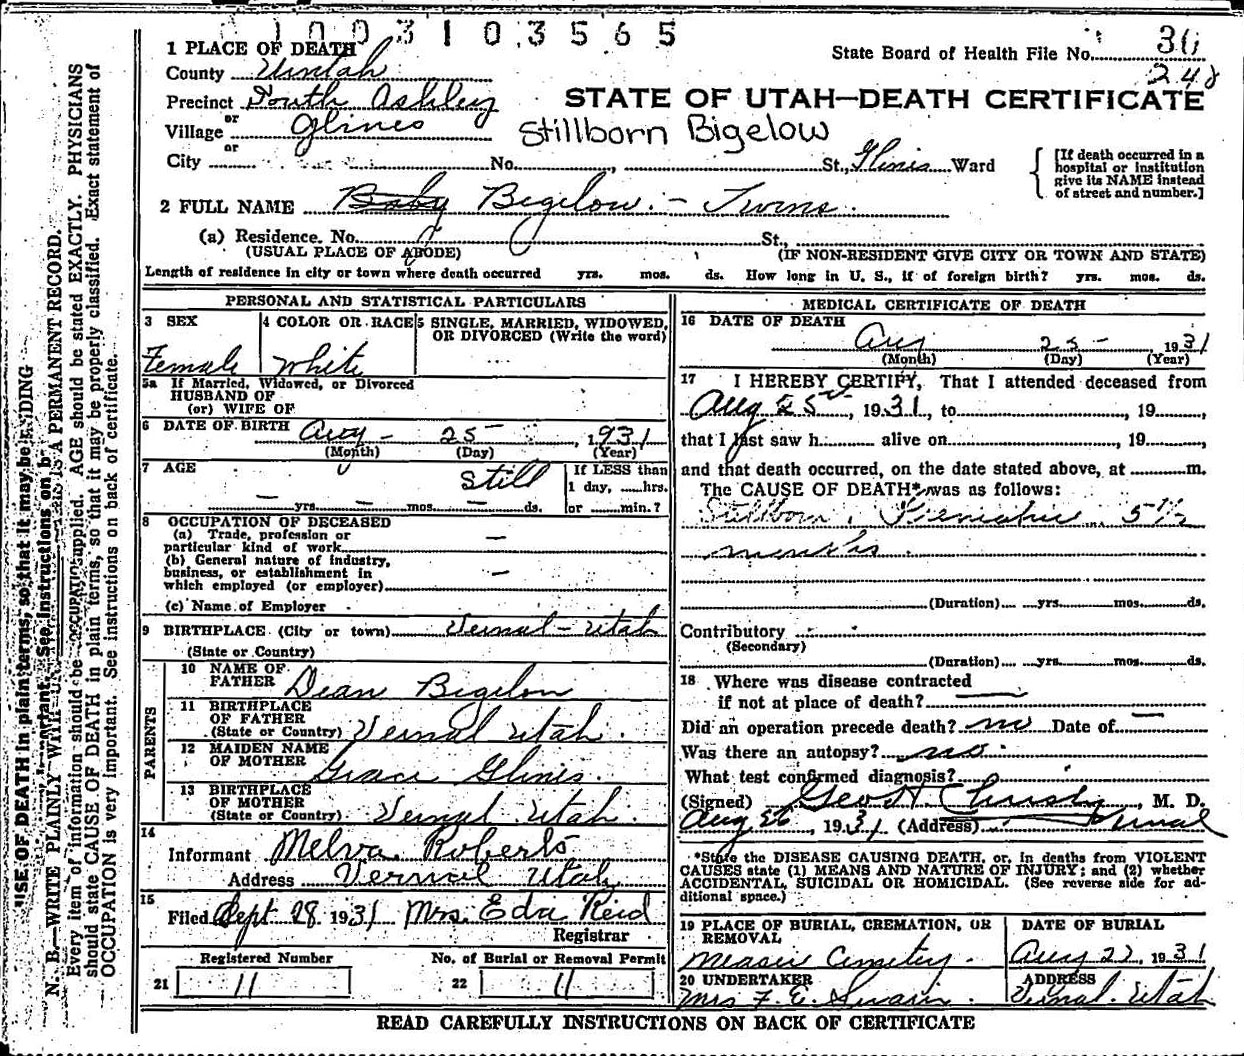 1003103565
State Board of Health File No. 36
248
1 PLACE OF DEATH
County Uintah
Precinct South Ashley
or
Village Glines
or
STATE OF UTAH—DEATH CERTIFICATE
Stillborn Bigelow
City No. St., Glines Ward
[If death occurred in a hospital or institution give its NAME instead of street and number.]
2 FULL NAME Baby Bigelow - Twins.
(a) Residence. No. St.,
(USUAL PLACE OF ABODE) (IF NON-RESIDENT GIVE CITY OR TOWN AND STATE)
Length of residence in city or town where death occurred yrs. mos. ds. How long in U. S., if of foreign birth? yrs. mos. ds.
PERSONAL AND STATISTICAL PARTICULARS
3 SEX
Female
4 COLOR OR RACE
White
5 SINGLE, MARRIED, WIDOWED, OR DIVORCED (Write the word)
5a If Married, Widowed, or Divorced
HUSBAND OF
(or) WIFE OF
6 DATE OF BIRTH Aug - 25 - , 1931
(Month) (Day) (Year)
7 AGE Still
— yrs. — mos. — ds.
If LESS than
1 day, hrs.
or min.?
8 OCCUPATION OF DECEASED
(a) Trade, profession or
particular kind of work —
(b) General nature of industry,
business, or establishment in
which employed (or employer) —
(c) Name of Employer
9 BIRTHPLACE (City or town) Vernal - Utah
(State or Country)
PARENTS
10 NAME OF FATHER Dean Bigelow
11 BIRTHPLACE OF FATHER
(State or Country) Vernal Utah.
12 MAIDEN NAME OF MOTHER Grace Glines.
13 BIRTHPLACE OF MOTHER
(State or Country) Vernal Utah.
14
Informant Melva Roberts
Address Vernal Utah
15
Filed Sept 28 1931 Mrs. Eda Reid
Registrar
Registered Number
21 11
No. of Burial or Removal Permit
22 11
MEDICAL CERTIFICATE OF DEATH
16 DATE OF DEATH
Aug 25 - 1931
(Month) (Day) (Year)
17 I HEREBY CERTIFY, That I attended deceased from
Aug 25th, 1931, to , 19 ,
that I last saw h alive on , 19 ,
and that death occurred, on the date stated above, at m.
The CAUSE OF DEATH* was as follows:
Stillborn. Premature 5 1/2
months.
(Duration) yrs. mos. ds.
Contributory
(Secondary)
(Duration) yrs. mos. ds.
18 Where was disease contracted
if not at place of death? —
Did an operation precede death? no Date of —
Was there an autopsy? no.
What test confirmed diagnosis?
(Signed) Geo H. Christy, M. D.
Aug 26, 1931 (Address) Vernal
*State the DISEASE CAUSING DEATH, or, in deaths from VIOLENT
CAUSES state (1) MEANS AND NATURE OF INJURY; and (2) whether
ACCIDENTAL, SUICIDAL OR HOMICIDAL. (See reverse side for ad-
ditional space.)
19 PLACE OF BURIAL, CREMATION, OR REMOVAL
Cemetery.
DATE OF BURIAL
Aug 1931
20 UNDERTAKER
Mrs F. E. Swain.
ADDRESS
Vernal. Utah
READ CAREFULLY INSTRUCTIONS ON BACK OF CERTIFICATE
N. B.—WRITE PLAINLY THIS IS A PERMANENT RECORD.
Every item of information should be supplied. AGE should be stated EXACTLY. PHYSICIANS
should state CAUSE OF DEATH in plain terms, so that it may be properly classified. Exact statement of
OCCUPATION is very important. See instructions on back of certificate.